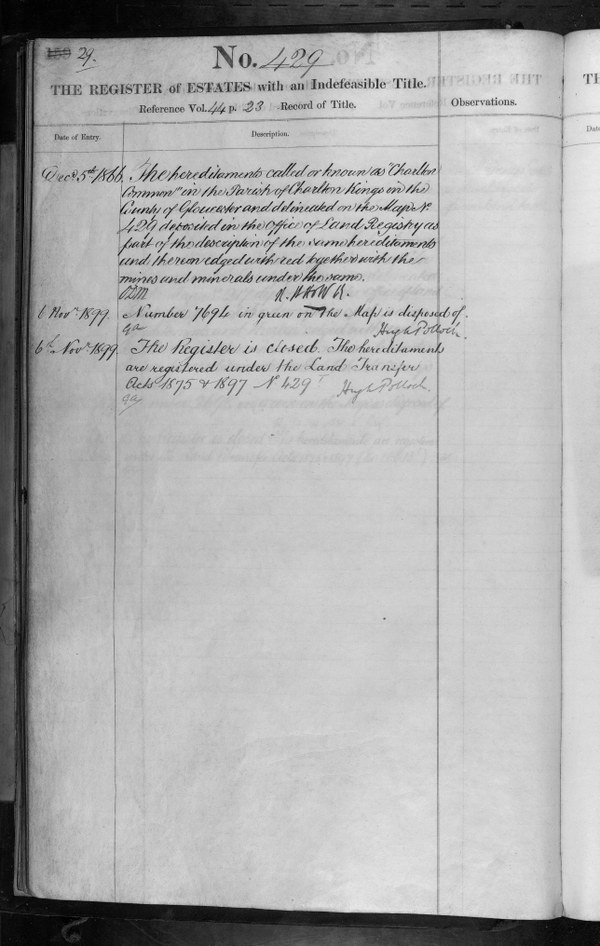 29.
No. 429
THE REGISTER of ESTATES with an Indefeasible Title.
Reference Vol. 44 p. 23 Record of Title.
Observations.
Date of Entry.
Description.
Decr. 5th 1866. The hereditaments called or known as "Charlton
Common" in the Parish of Charlton Kings in the
County of Gloucester and delineated on the Map No.
429 deposited in the Office of Land Registry as
part of the description of the same hereditaments
and thereon edged with red together with the
mines and minerals under the same.
6 Novr. 1899. Number 769½ in green on the Map is disposed of.
Hugh Pollock.
6th Novr. 1899. The Register is closed. The hereditaments
are registered under the Land Transfer
Acts 1875 & 1897 No 429
Hugh Pollock.